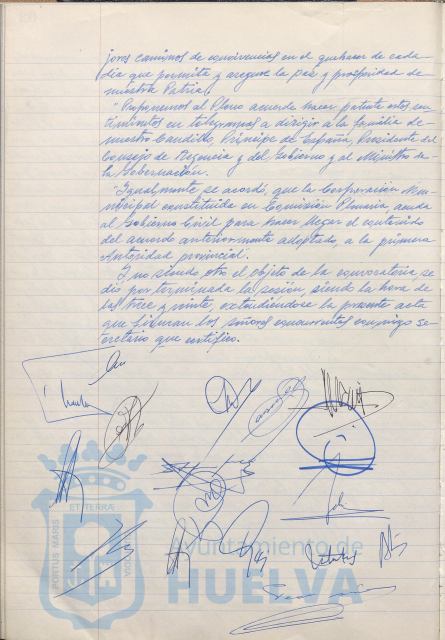 jores caminos de convivencias en el quehacer de cada
día que permita y asegure la paz y prosperidad de
nuestra Patria.
"Proponemos al Pleno acuerde hacer patente estos sen-
timientos en telegramas a dirigir a la familia de
nuestro Caudillo, Príncipe de España, Presidente del
Consejo de Regencia y del Gobierno y al Ministro de
la Gobernación.
"Igualmente se acordó, que la Corporación Mu-
nicipal constituida en Comisión Plenaria acuda
al Gobierno Civil para hacer llegar el contenido
del acuerdo anteriormente adoptado, a la primera
Autoridad provincial.
Y no siendo otro el objeto de la convocatoria se
dió por terminada la sesión, siendo la hora de
las trece y veinte, extendiéndose la presente acta
que firman los señores concurrentes conmigo se-
cretario que certifico.
PORTUS MARIS
ET TERRÆ
Ayuntamiento de
HUELVA